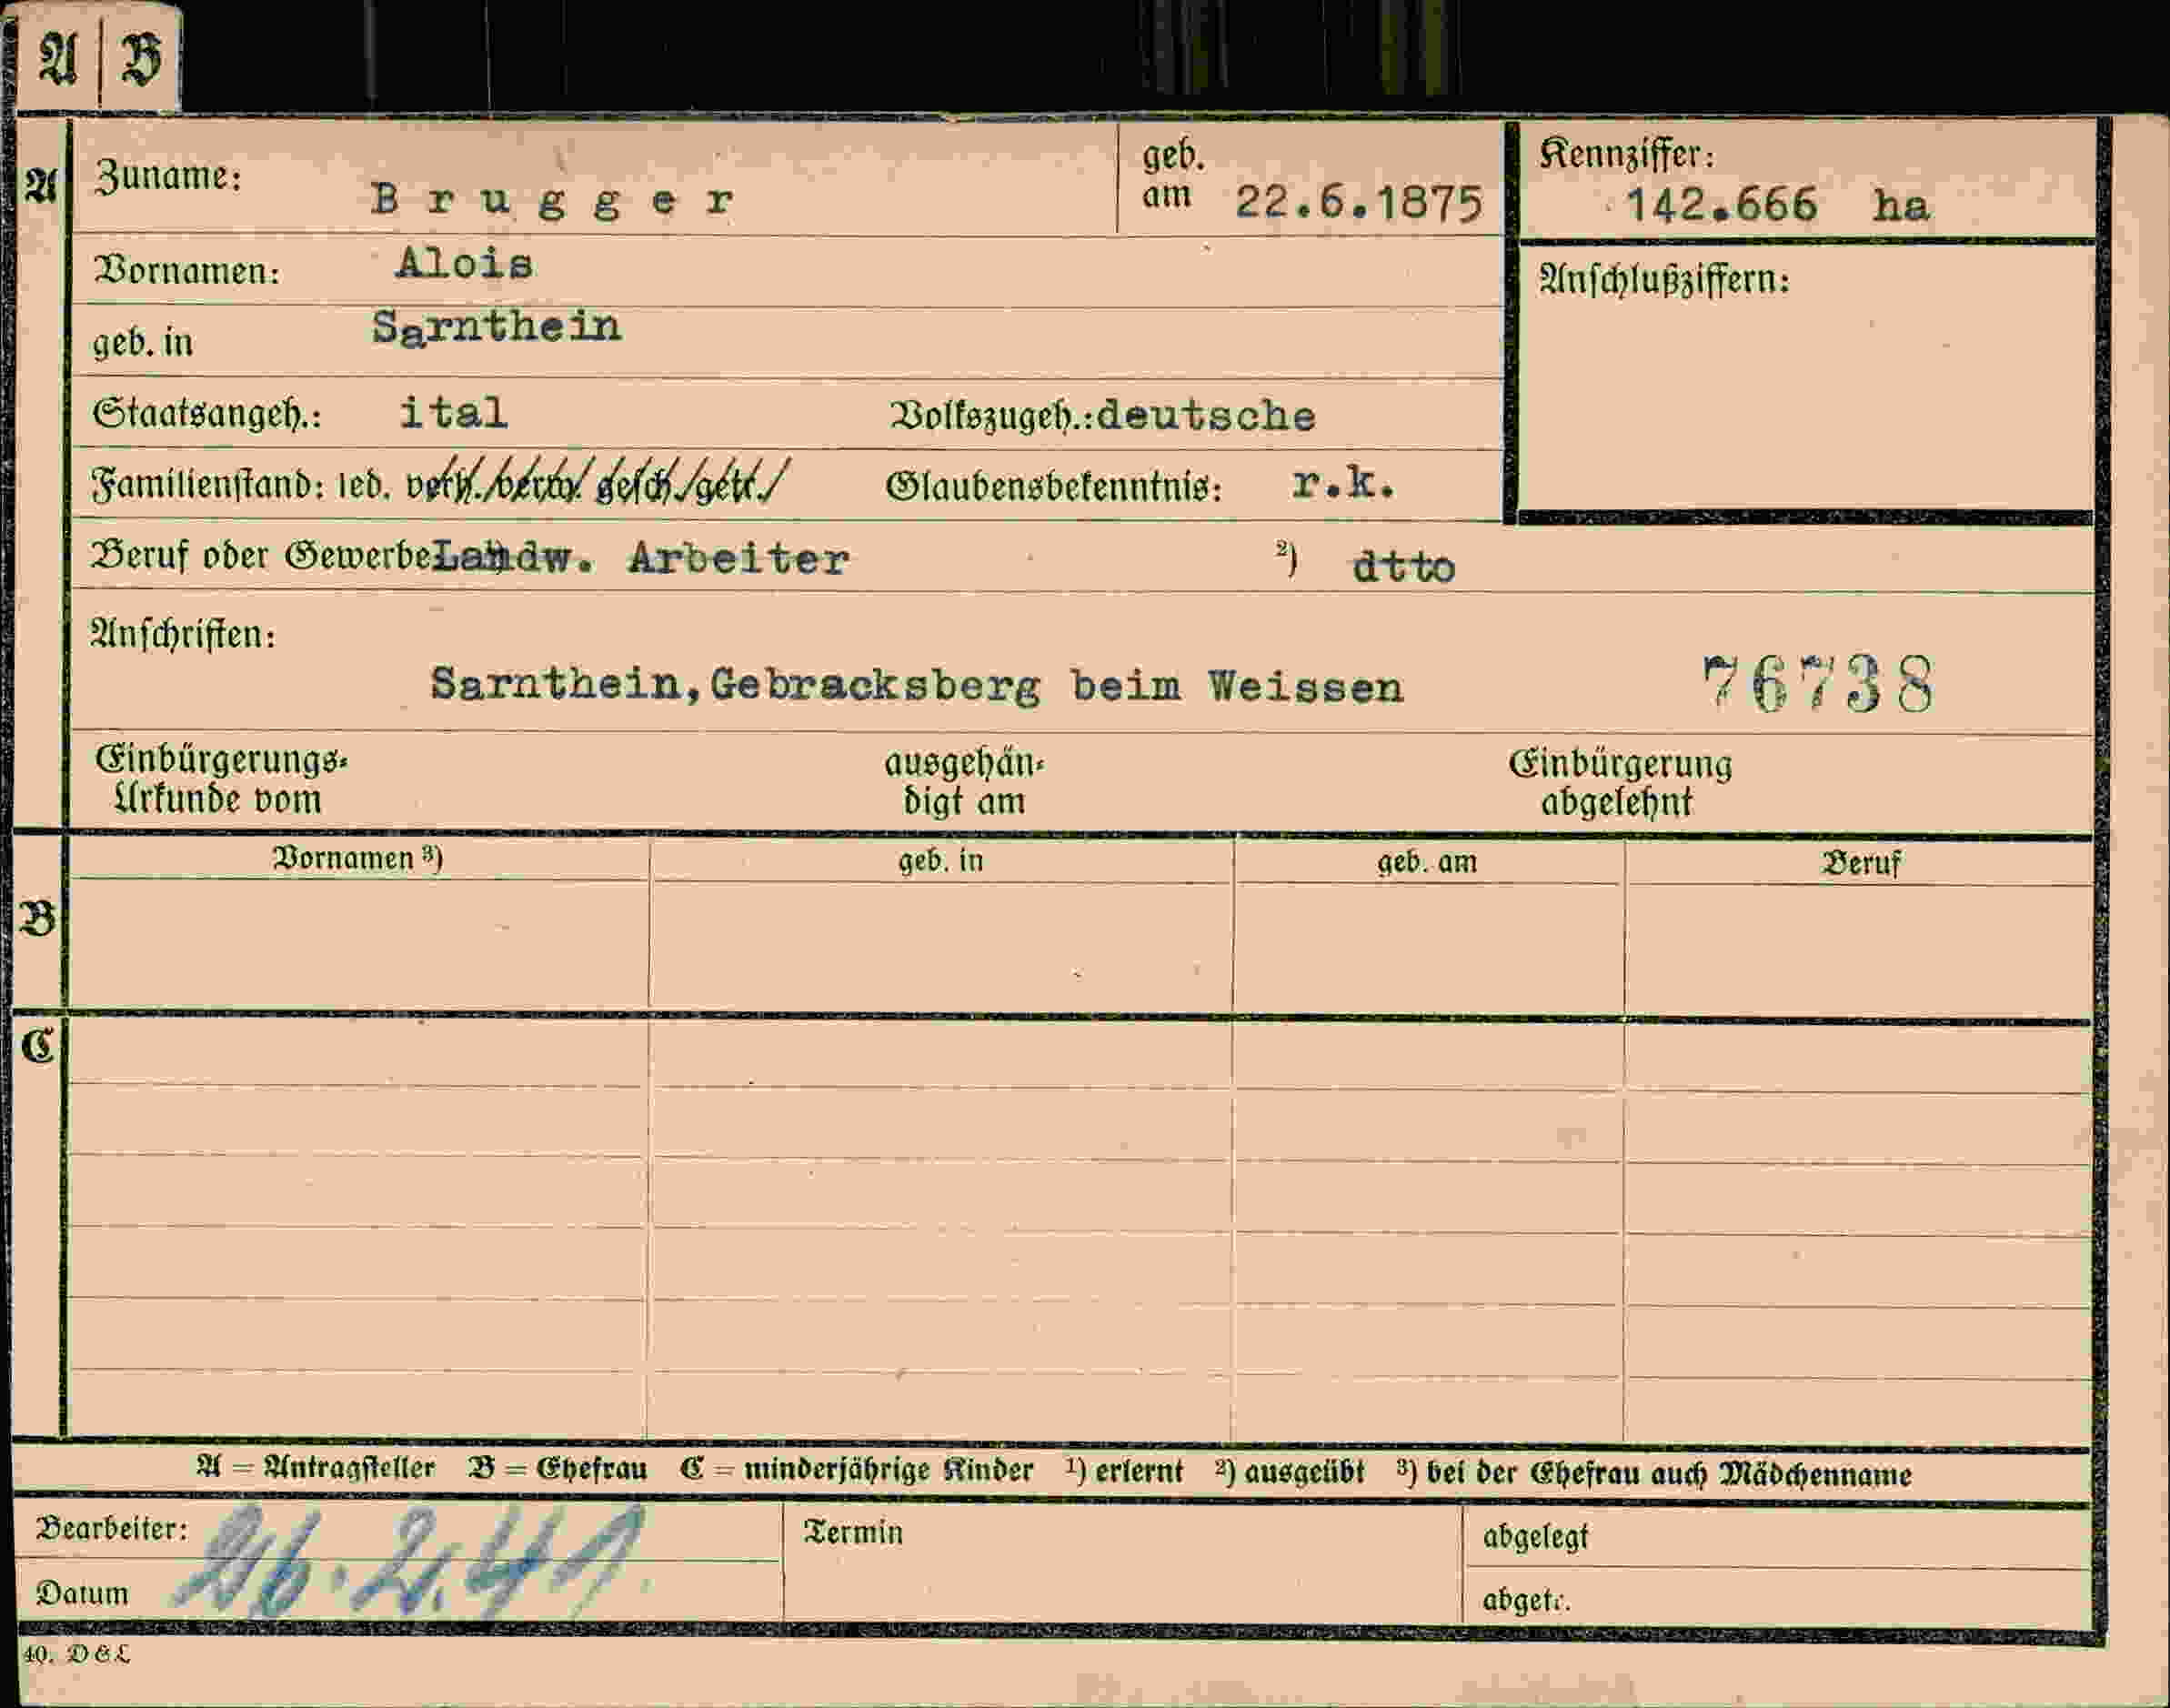 A | B
A
Zuname: Brugger geb. am 22.6.1875 Kennziffer: 142.666 ha
Vornamen: Alois Anschlußziffern:
geb. in Sarnthein
Staatsangeh.: ital Volkszugeh.: deutsche
Familienstand: led. verh./verw./ gesch./getr./ Glaubensbekenntnis: r.k.
Beruf oder Gewerbe Landw. Arbeiter ²) dtto
Anschriften:
Sarnthein,Gebracksberg beim Weissen 76738
Einbürgerungs- ausgehän- Einbürgerung
Urkunde vom digt am abgelehnt
Vornamen ³) geb. in geb. am Beruf
B
C
A = Antragsteller B = Ehefrau C = minderjährige Kinder ¹) erlernt ²) ausgeübt ³) bei der Ehefrau auch Mädchenname
Bearbeiter: Termin abgelegt
Datum 26.2.41. abgetr.
40. D & L